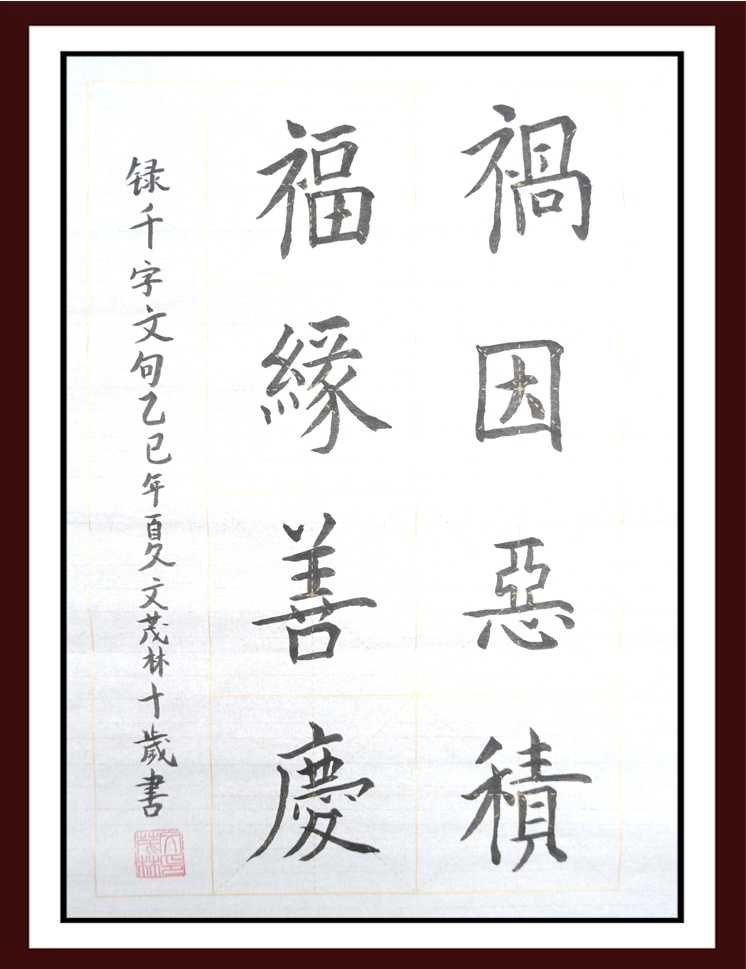 禍因惡積
福緣善慶
録千字文句乙巳年夏文茂林十歲書